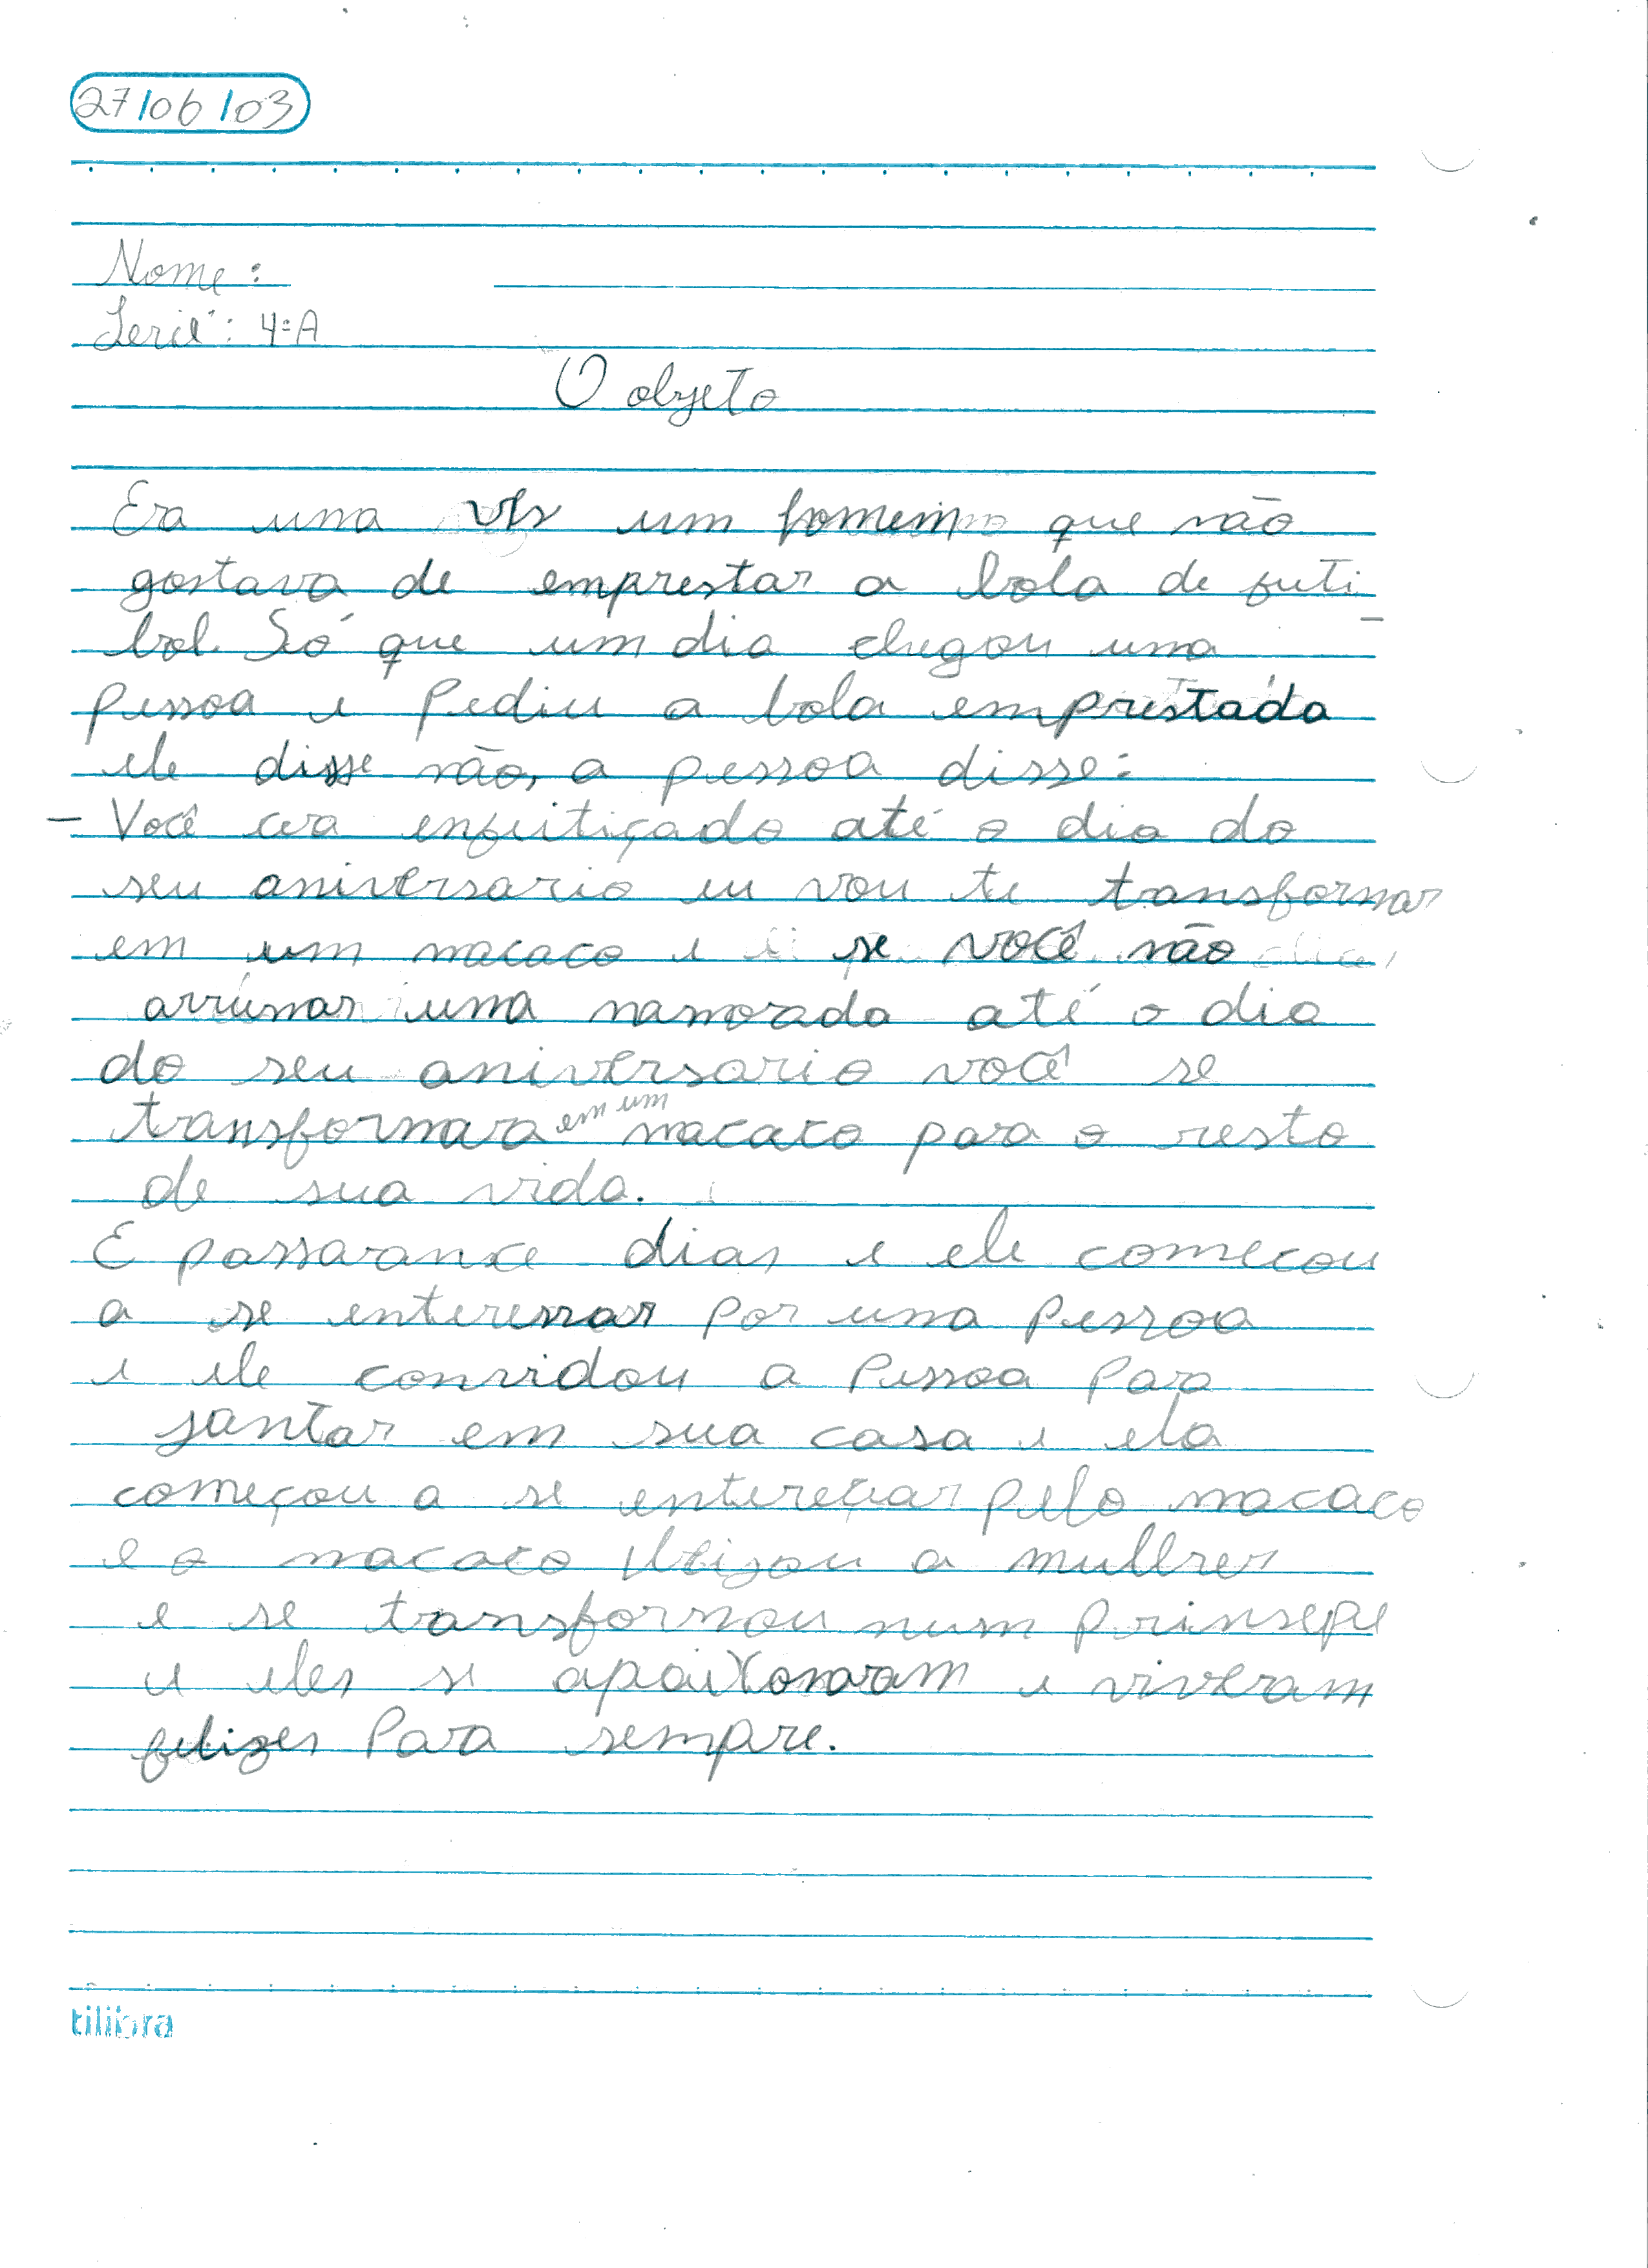 27/06/03
Nome:
Serie: 4ªA
O objeto
Era uma vez um homem que não
gostava de emprestar a bola de futi-
bol. Só que um dia chegou uma
pessoa e pediu a bola emprestada
ele disse não, a pessoa disse:
- Você cera enfeitiçado até o dia do
seu aniversario eu vou te transformar
em um macaco e se você não
arrumar uma namorada até o dia
do seu aniversario você se
transformara em um macaco para o resto
de sua vida.
E passaram dias e ele comecou
a se enteressar por uma pessoa
e ele convidou a pessoa para
jantar em sua casa e ela
começou a se entereçar pelo macaco
e o macaco beijou a mullher
e se transformou num prinsepe
e eles se apaixonaram e viveram
felizes para sempre.
tilibra